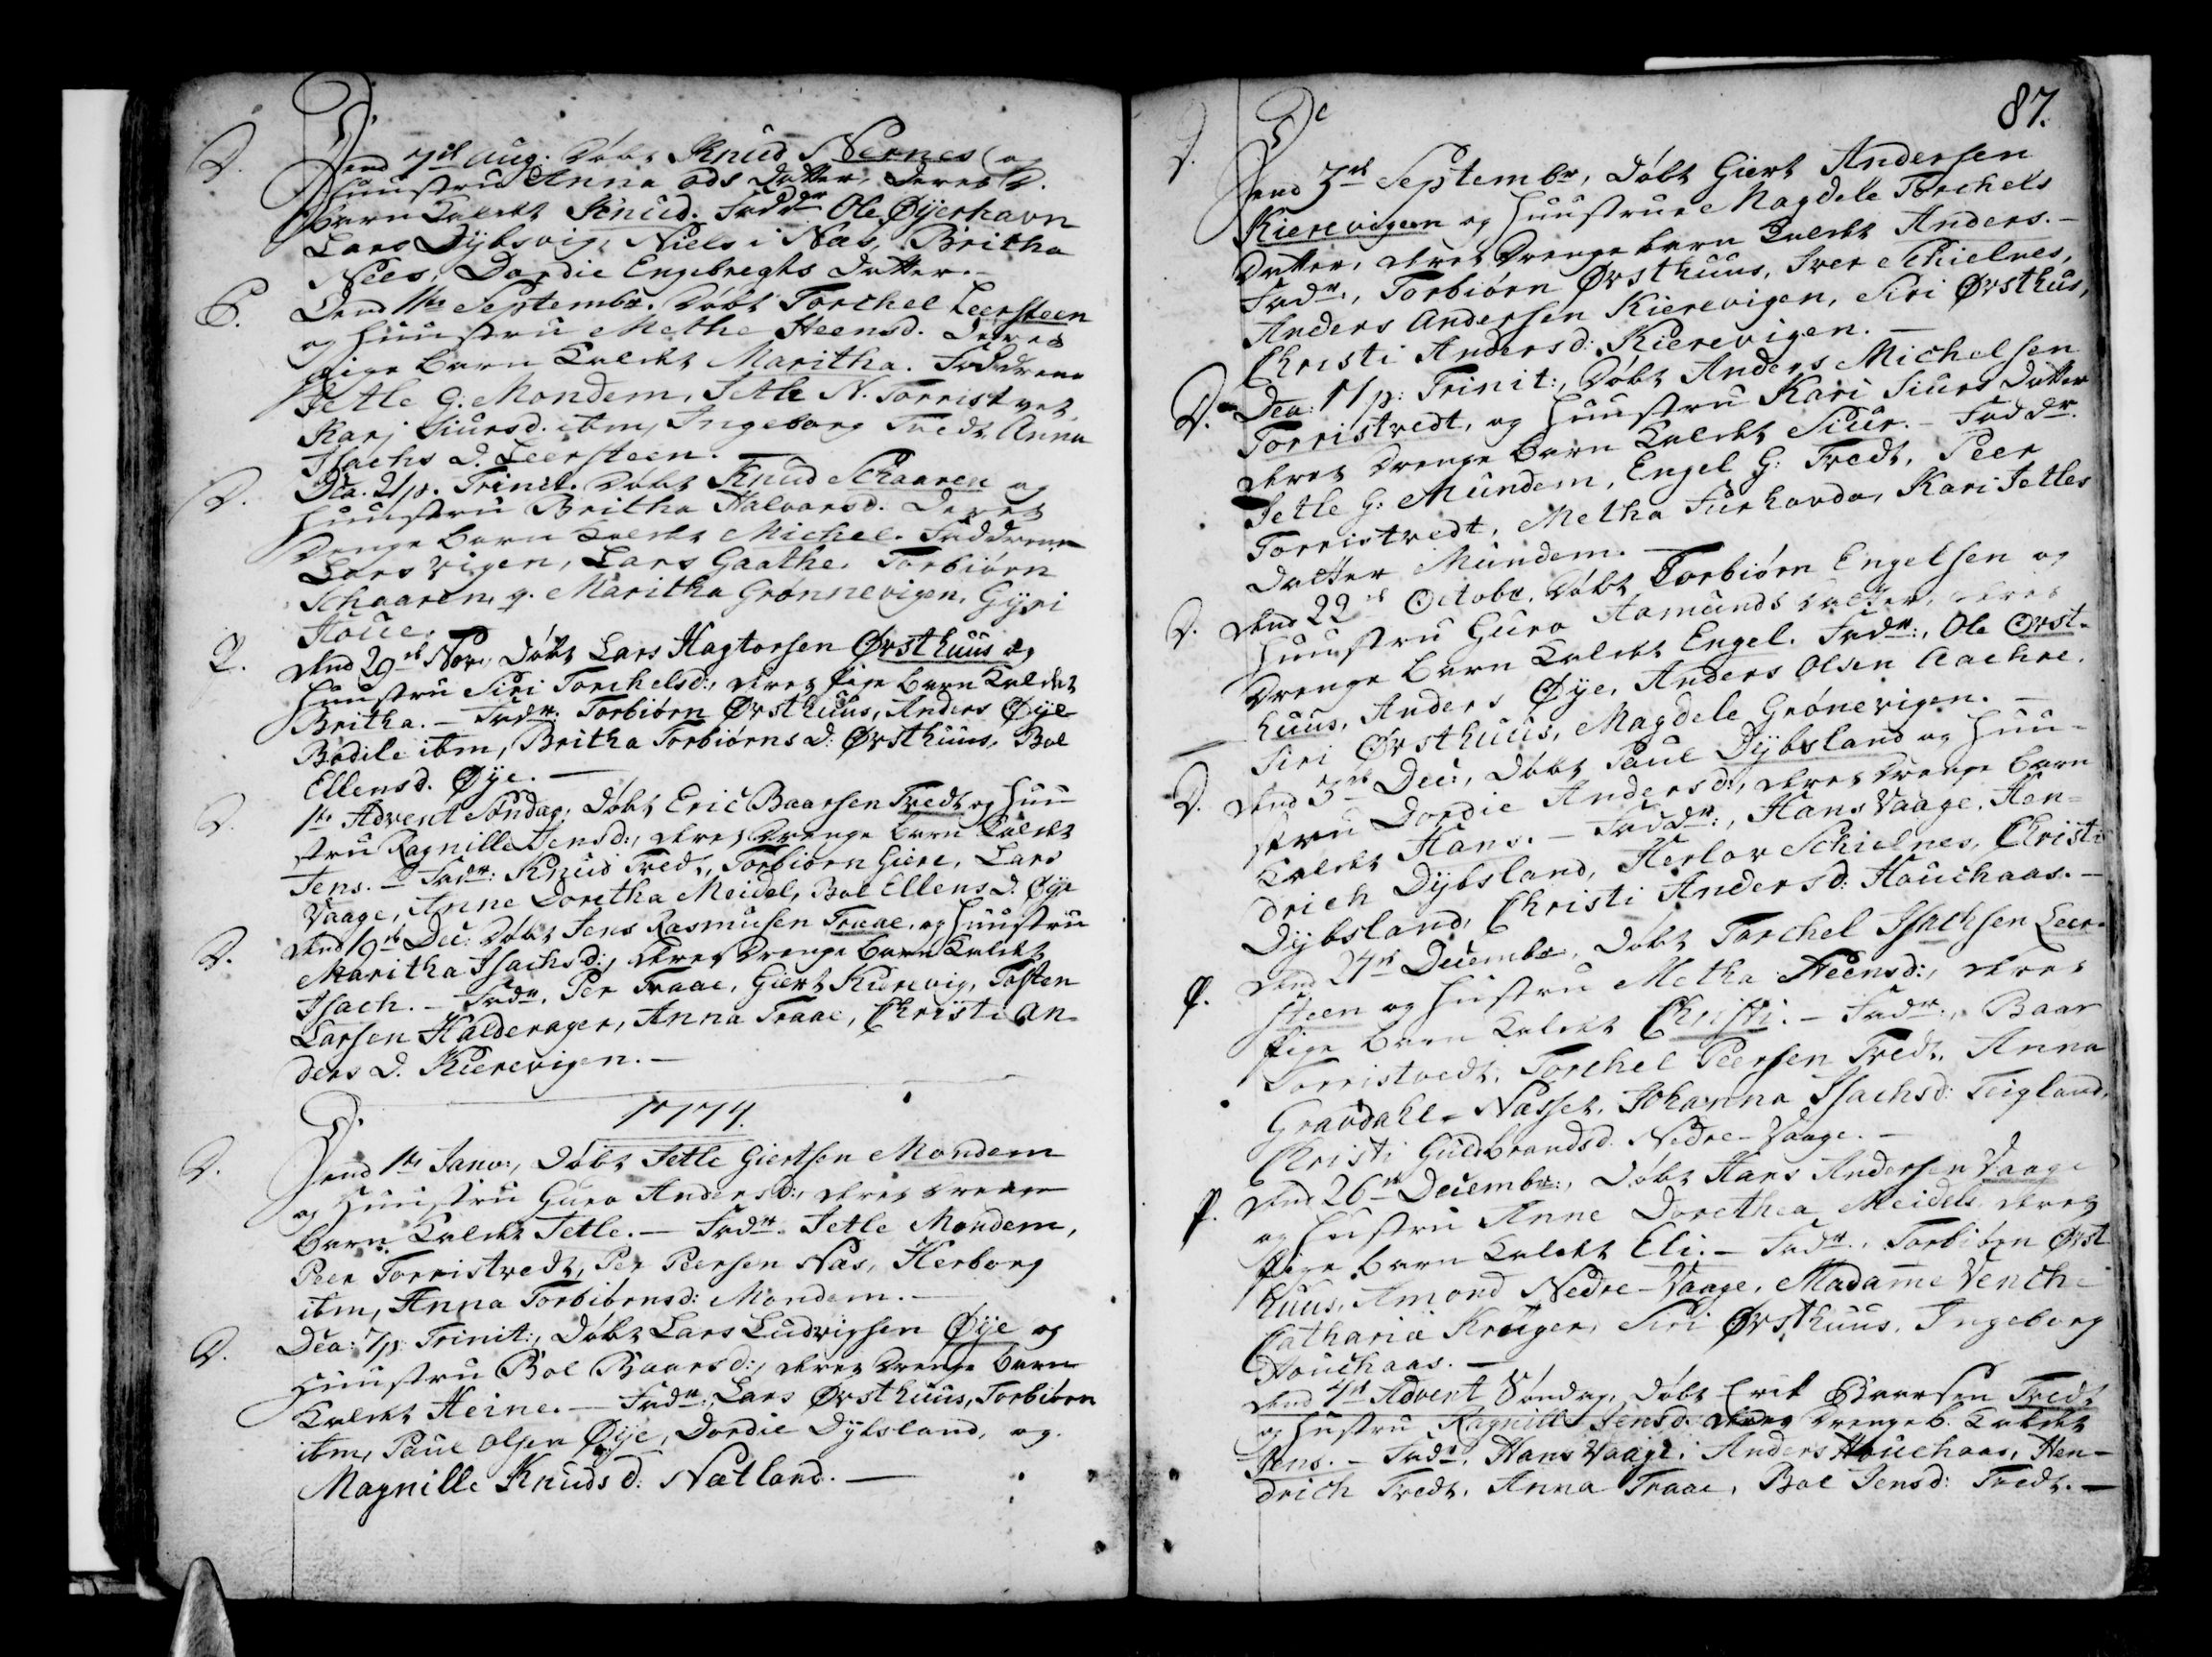 D.
Dend 7de Aug. Döbt Knud Nernes og
Huustru Anna Ods Datter, Deres D.
Barn Kaldet Knud. Faddr Ole Øyerhavn
Lars Dybsvig, Niels i Næs, Britha
Nees, Dordie Engebregts Datter.
P.
Dend 11te Septembr. Döbt Torchel Leersteen
og Huustru Metha Steensd. Deres
Pige Barn Kaldet Maritha. Faddrene
Jetle G. Mondem, Jetle N. Torristvet
Karj Siursd. ibm, Ingeborg Tredt, Anna
Isachs D. Leersteen.
D.
Dca. 21 p. Trinit. Döbt Knud Schaaren og
Huustru Britha Halvorsd. Deres
Drenge Barn Kaldet Michel. Faddrene
Lars Vigen, Lars Gaathe, Torbiörn
Schaaren, q. Maritha Grönnevigen, Gyri
Houe.
P.
Dend 29de Nov., Döbt Lars Hagtorsen Ørsthuus og
Huustru Siri Torchelsd:, deres Pige Barn Kaldet
Britha. - Fadr: Torbiörn Ørsthuus, Anders Øye
Bodile ibm, Britha Torbiörns D: Ørsthuus, Bol
Ellensd. Øye. -
D.
1te Advent Söndag, Döbt Eric Baarsen Tredt og Huu
stru Ragnille Jensd:, deres Drenge Barn Kaldet
Jens. - Fadr: Knud Tredt, Torbiörn Giere, Lars
Vaage, Anne Dorotha Meidel, Bol Ellens D. Øye
D.
Dend 19de Dec: Döbt Jens Rasmusen Traae, og Huustru
Maritha Isachsd:, deres Drenge Barn Kaldet
Isach. - Fadr. Per Traae, Giert Kierevig, Tosten
Larsen Halderager, Anna Traae, Christi An-
ders D. Kierevigen. -
1774.
D.
Dend 1te Janv:, Döbt Jetle Giertsen Mondem
og Huustru Guro Andersd:, deres Drenge
Barn Kaldet Jetle. - Fadr. Jetle Mondem,
Peer Torristvedt, Per Peersen Næs, Herborg
ibm, Anna Torbiörnsd: Mondem. -
D.
Dca: 7 p: Trinit:, Döbt Lars Ludvigsen Øye og
Huustru Bol Baarsd:, deres Drenge Barn
Kaldet Heine. - Fadr:, Lars Ørsthuus, Torbiörn
ibm, Paul Olsen Øye, Dordie Dybsland, og
Magnille Knudsd: Natland. -
87.
D.
Dend 3de Septembr, Döbt Giert Andersen
Kierevigen og Huustrue Magdele Torchels
Datter, deres Drenge Barn Kaldet Anders. -
Fadr., Torbiörn Ørsthuus, Iver Schielnes,
Anders Andersen Kierevigen, Siri Ørsthus,
Christi Andersd: Kierevigen. -
D.
Dca: 17 p: Trinit:, Döbt Anders Michelsen
Torristvedt, og Huustru Kari Siurs Datter
deres Drenge Barn Kaldet Siur. - Faddr.
Jetle G: Mundem, Engel G: Tredt, Peer
Torristvedt, Metha Kari Jetles
Datter Mundem.
D.
Dend 22de Octobr. Döbt Torbiörn Engelsen og
Huustru Guro Aamunds Datter, deres
Drenge Barn Kaldet Engel. Fadr:, Ole Ørst-
huus, Anders Øye, Anders Olsen Aachre,
Siri Ørsthuus, Magdele Grönevigen. -
D.
Dend 3de Dec:, Döbt Paul Dybsland og Huu-
stru Dordie Andersd:, deres Drenge Barn
Kaldet Hans. - Faddr:, Hans Vaage, Hen-
drich Dybsland, Herlov Schielnes, Christi
Dybsland, Christi Andersd: Houchaas. -
P.
Dend 24de Decembr, Döbt Torchel Isachsen Leer-
steen og Hustru Metha Steensd:, deres
Pige Barn Kaldet Christi. - Fadr:, Baar
Torristvedt, Torchel Peersen Tredt, Anna
Gravdahl-Næsset, Johanna Isachsd: Teigland,
Christi Guldbrandsd. Nedre-Vaage. -
P.
Dend 26de Decembr:, Döbt Hans Andersen Vaage
og Hustru Anne Dorethea Meidels deres
Pige Barn Kaldet Eli. - Fadr., Torbiörn Ørst-
huus, Amond Nedre-Vaage, Madame Venche
Catharia Krüger, Siri Ørsthuus, Ingeborg
Houchaas. -
Dend 4de Advent Söndag, Döbt Erik Baarsen Tredt
og Hustru Ragnille Jensd: deres Drenge b. Kaldet
Jens. - Fadr. Hans Vaage, Anders Houchaas, Hen-
drich Tredt, Anna Traae, Bol Jensd: Tredt. -